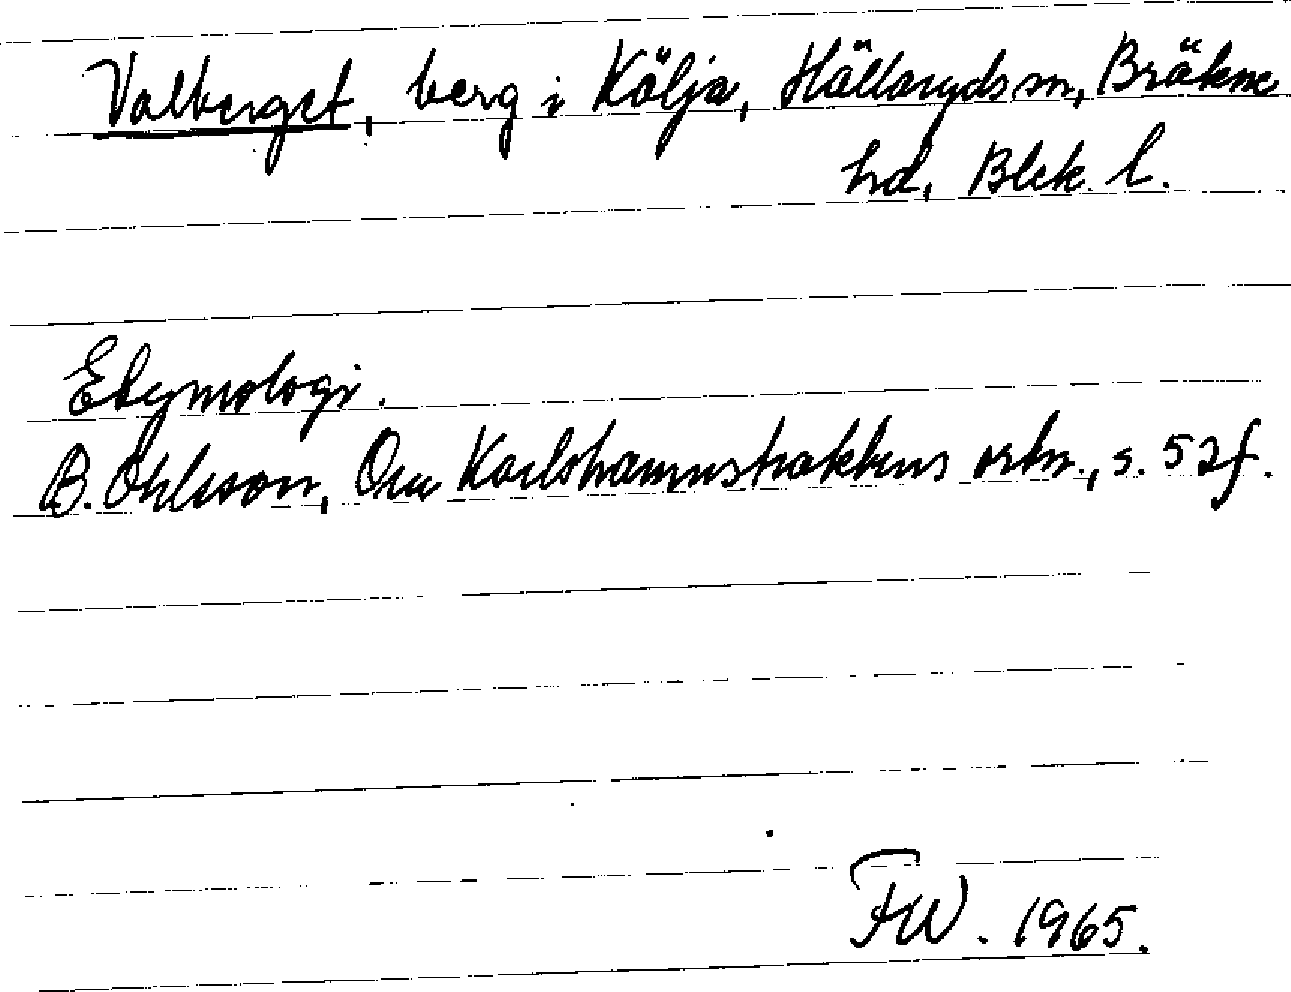 Valberget, berg i Kölja, Hällaryds sn, Bräkne
hd, Blek. l.
Etymologi.
B. Ohlsson, Om Karlshamnstraktens ortn., s. 52f.
FW. 1965.